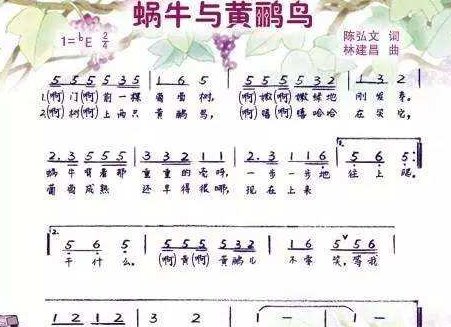 蜗牛与黄鹂鸟
1=♭E 2/4
陈弘文 词
林建昌 曲
5 5 5 5 3 5 | 1 6 5 | 5 5 5 5 3 2 | 1 3 2 |
1.(啊)门(啊)前一棵 葡萄树, (啊)嫩(啊)嫩绿地 刚发芽。
2.(啊)树(啊)上两只 黄鹂鸟, (啊)嘻(啊)嘻哈哈 在笑它,
2. 3 5 5 5 | 3 3 2 1 1 | 2. 3 1 1 6 | 5 6 5 :
蜗牛背着那 重重的壳呀, 一步一步地 往上爬。
葡萄成熟 还早得很哪, 现在上来
2.
5 6 5 | 5 5 5 5 3 2 | 1 6 5 5 6 |
干什么。 (啊)黄(啊)黄鹂儿 不要 笑,等我
1 2 1 2 | 3 2 | 1 – | 1 – |